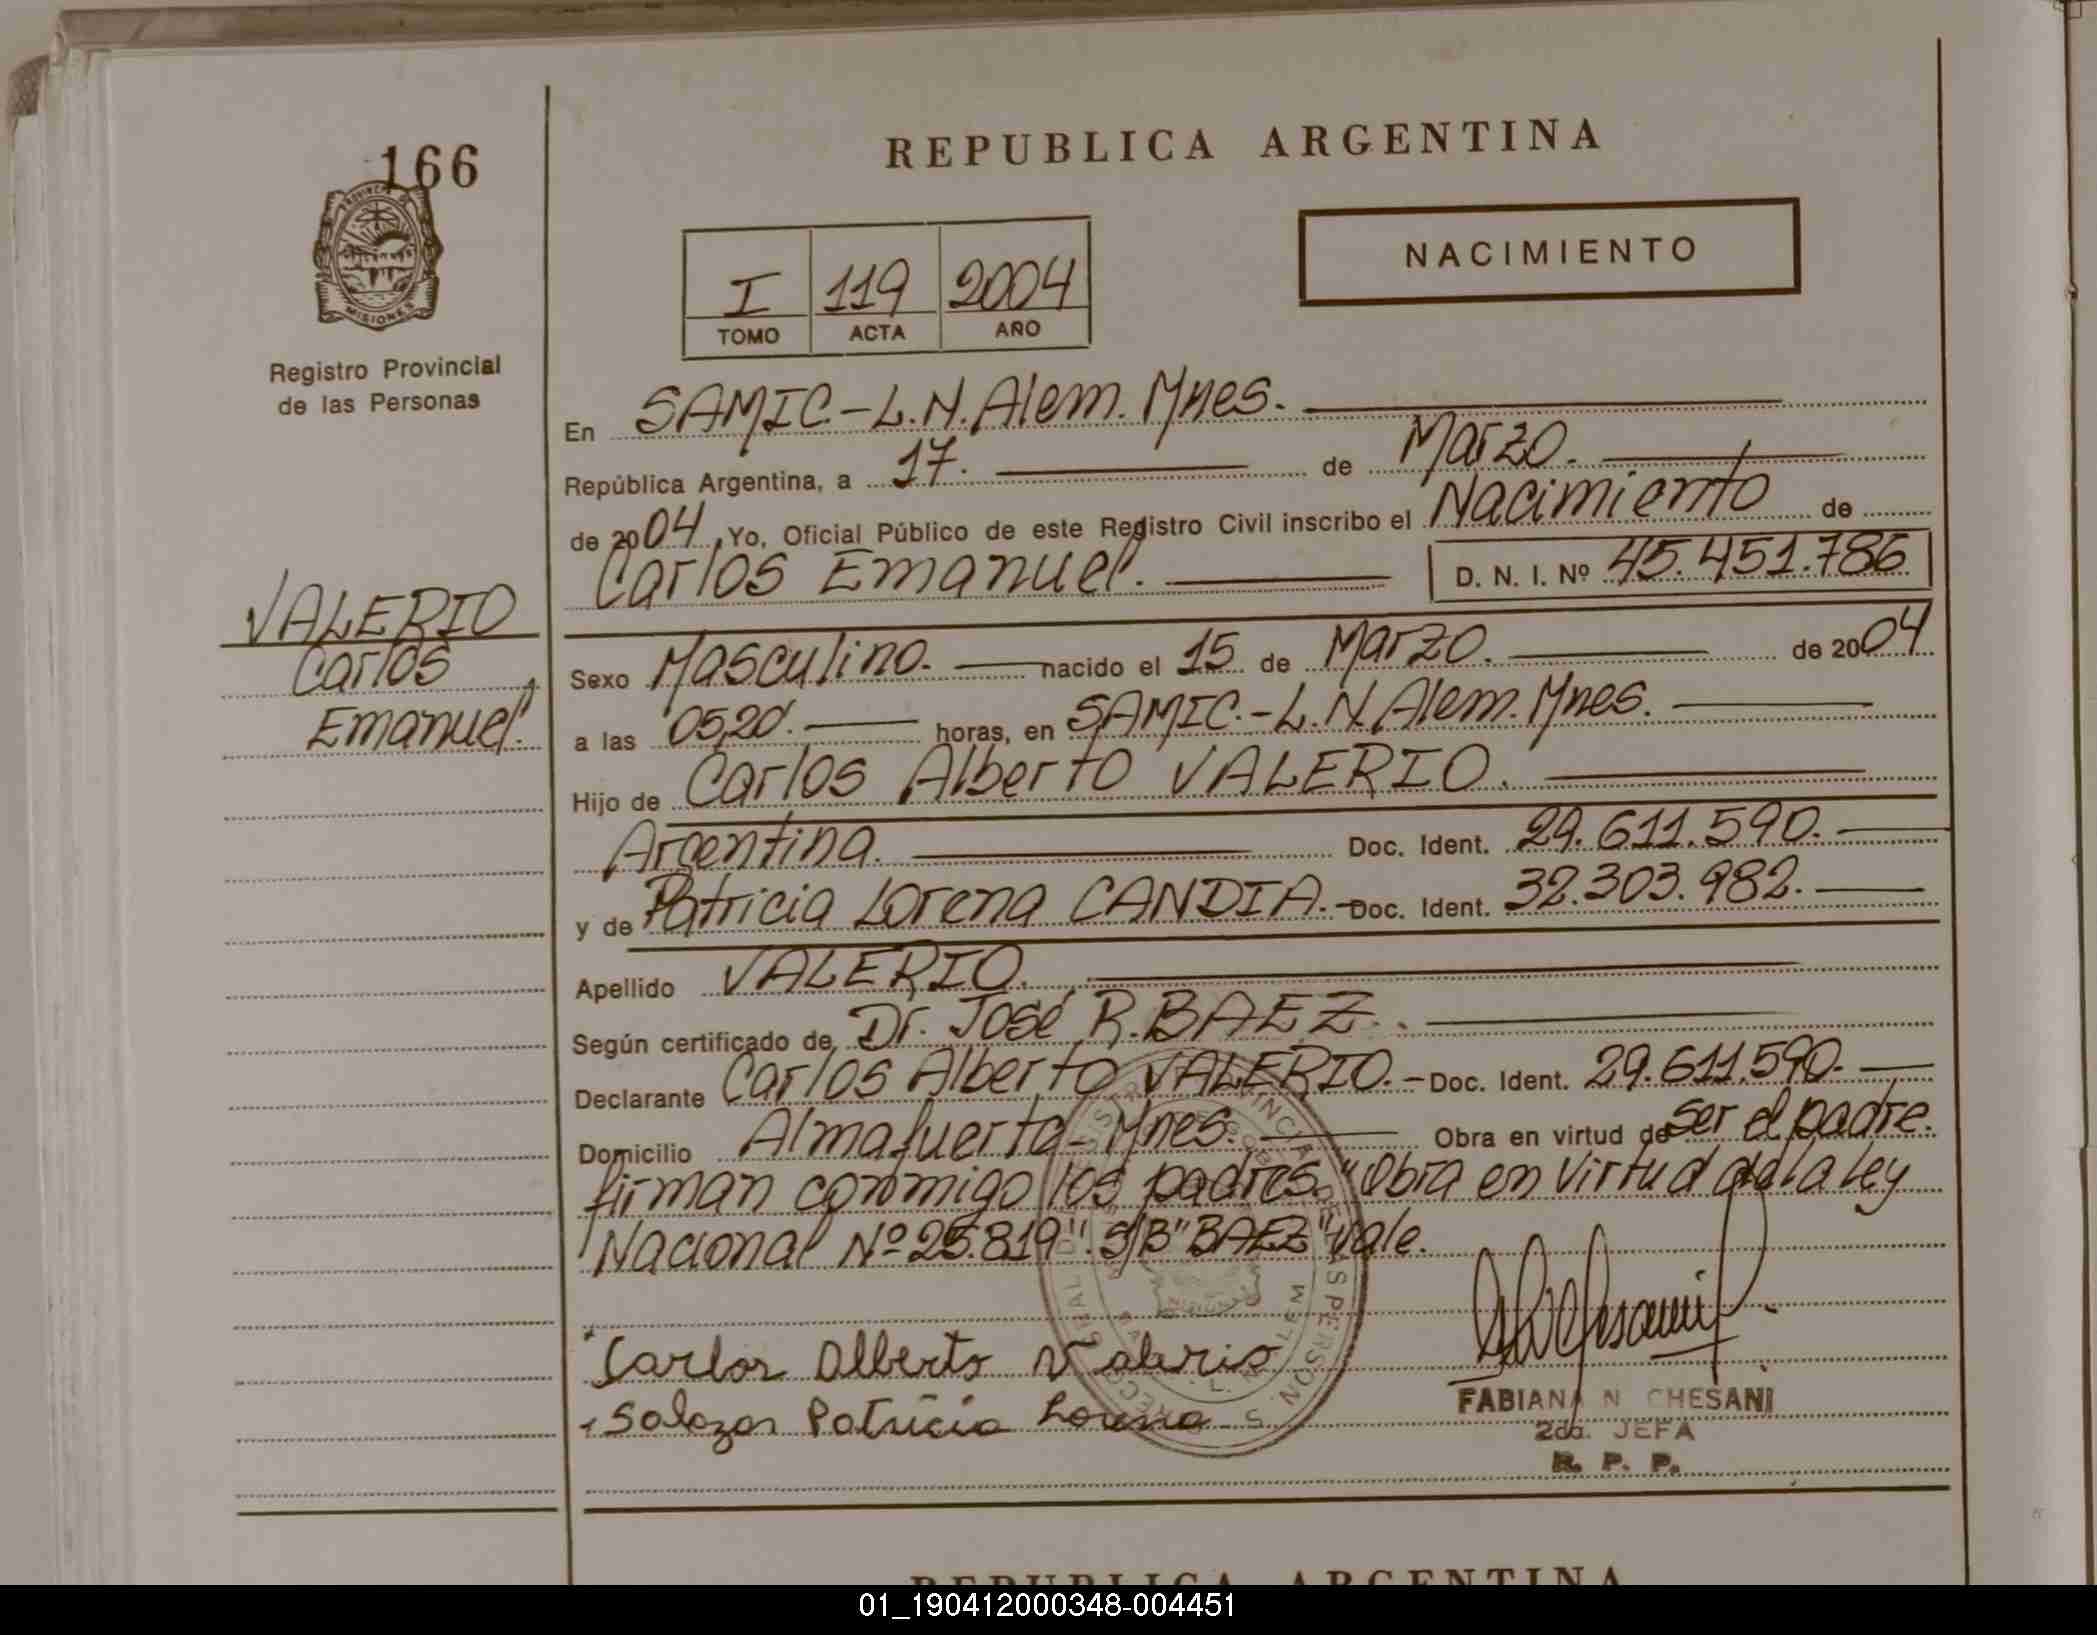 166
REPUBLICA ARGENTINA
NACIMIENTO
I 119 2004
TOMO ACTA AÑO
MISIONES
Registro Provincial
de las Personas
En SAMIC.-L.N.Alem.Mnes.
República Argentina, a 17. de Marzo.
de 2004. Yo, Oficial Público de este Registro Civil inscribo el Nacimiento de
Carlos Emanuel. D. N. I. Nº 45.451.786
VALERIO
Carlos
Emanuel.
Sexo Masculino. nacido el 15 de Marzo. de 2004
a las 05,20. horas, en SAMIC.-L.N.Alem.Mnes.
Hijo de Carlos Alberto VALERIO.
Argentina. Doc. Ident. 29.611.590.
y de Patricia Lorena CANDIA.- Doc. Ident. 32.303.982.
Apellido VALERIO.
Según certificado de Dr. José R.BAEZ.
Declarante Carlos Alberto VALERIO.- Doc. Ident. 29.611.590.
Domicilio Almafuerte-Mnes. Obra en virtud de ser el padre.
firman conmigo los padres."Obra en Virtud de la Ley
Nacional Nº 25.819". S/B"BAEZ"Vale.
Carlos Alberto Valerio
Salazar Patricia Lorena
FABIANA N CHESANI
2da. JEFA
R. P. P.
REPUBLICA ARGENTINA
01_190412000348-004451